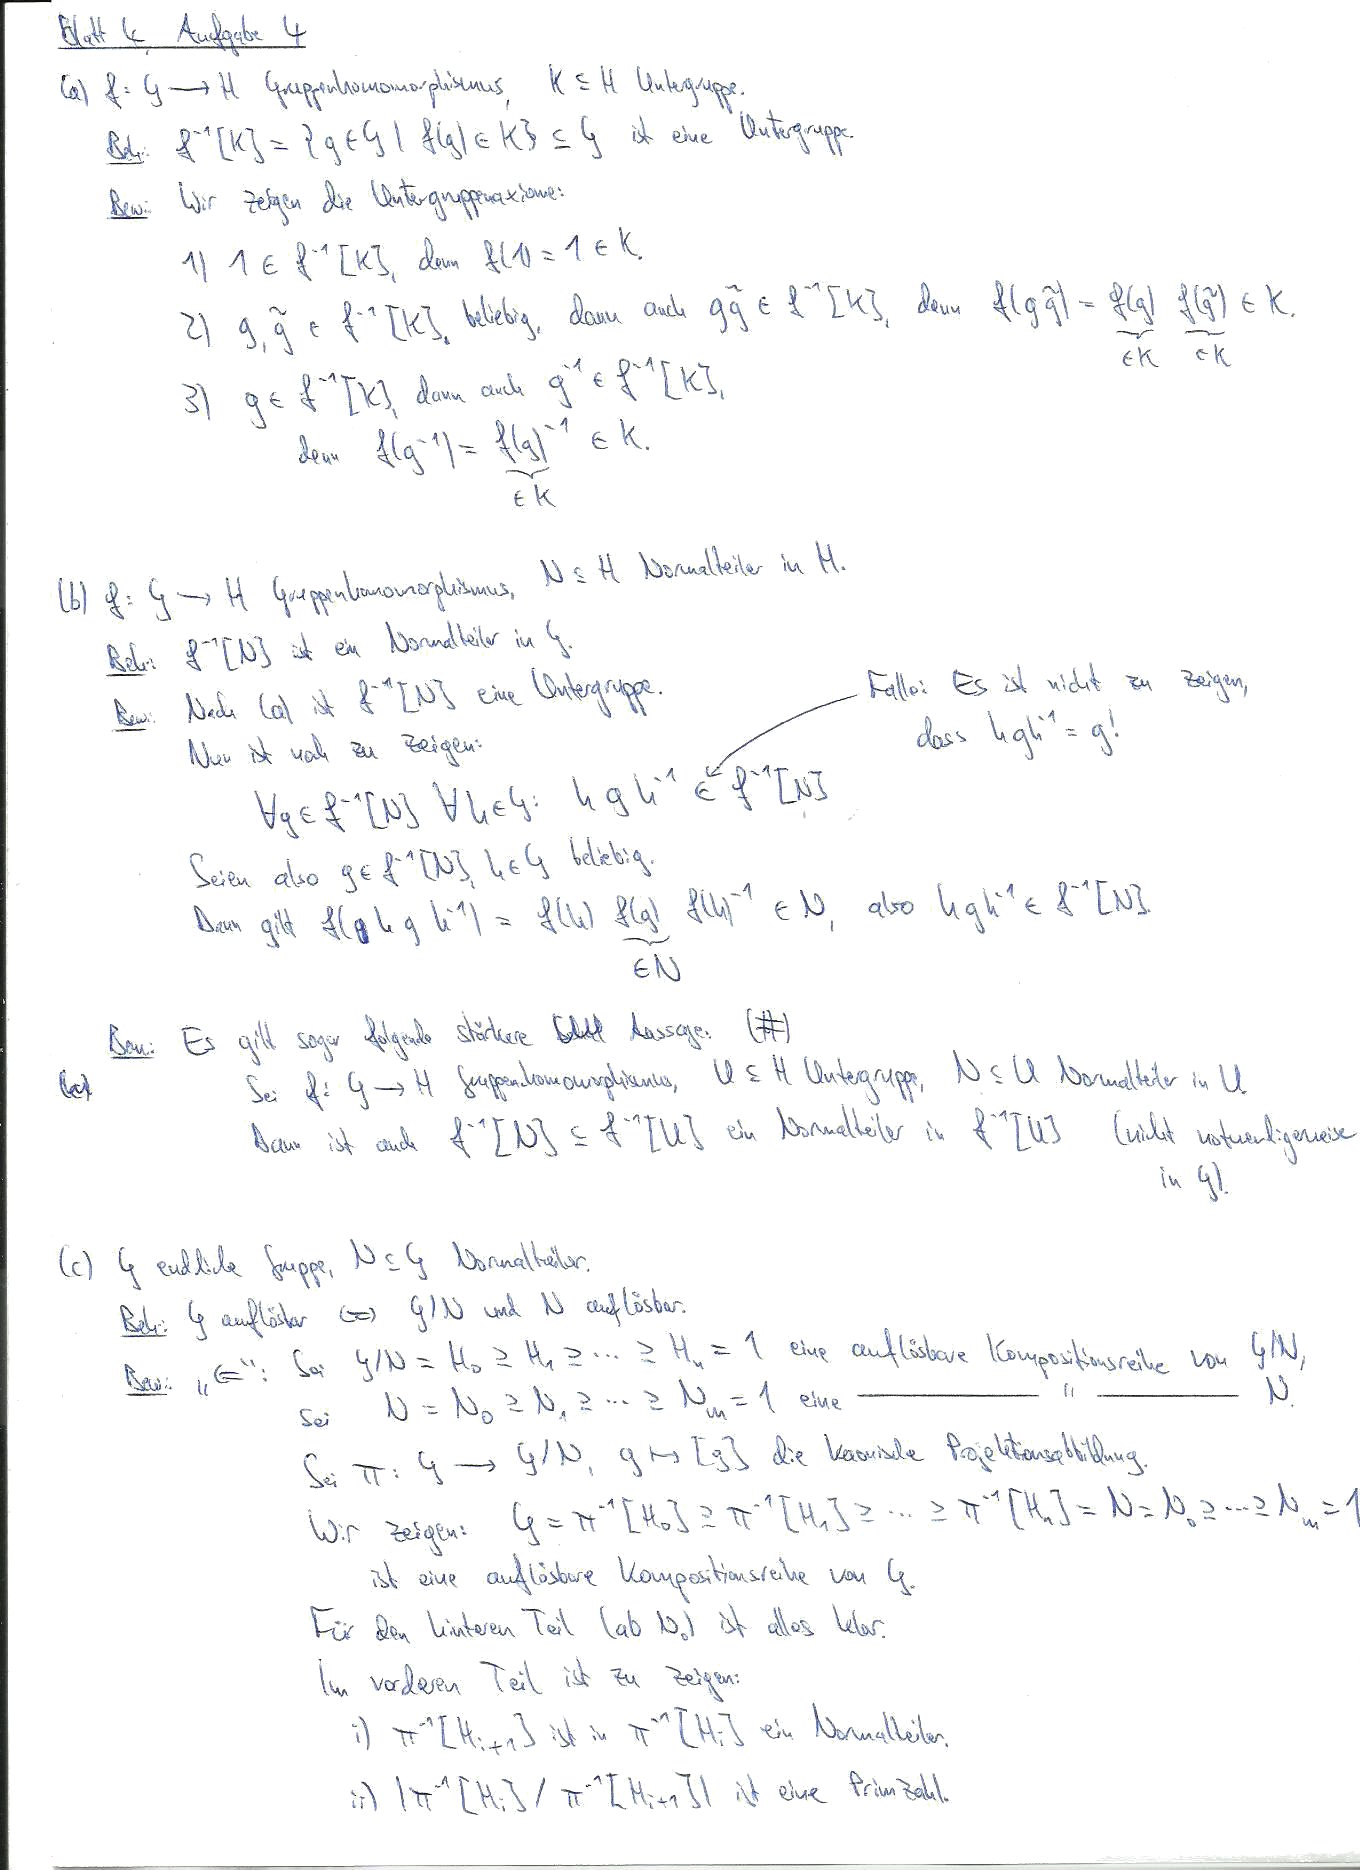 Blatt 4, Aufgabe 4
(a) f: G → H Gruppenhomomorphismus, K ⊆ H Untergruppe.
Beh: f⁻¹[K] = {g ∈ G | f(g) ∈ K} ⊆ G ist eine Untergruppe.
Bew: Wir zeigen die Untergruppenaxiome:
1) 1 ∈ f⁻¹[K], denn f(1) = 1 ∈ K.
2) g, g̃ ∈ f⁻¹[K], beliebig, dann auch gg̃ ∈ f⁻¹[K], denn f(gg̃) = f(g) f(g̃) ∈ K.
∈K ∈K
3) g ∈ f⁻¹[K], dann auch g⁻¹ ∈ f⁻¹[K],
denn f(g⁻¹) = f(g)⁻¹ ∈ K.
∈ K
(b) f: G → H Gruppenhomomorphismus, N ⊆ H Normalteiler in H.
Beh: f⁻¹[N] ist ein Normalteiler in G.
Bew: Nach (a) ist f⁻¹[N] eine Untergruppe.
Falle: Es ist nicht zu zeigen,
dass hgh⁻¹ = g!
Nun ist noch zu zeigen:
∀g ∈ f⁻¹[N] ∀h ∈ G: h g h⁻¹ ∈ f⁻¹[N]
Seien also g ∈ f⁻¹[N], h ∈ G beliebig.
Dann gilt f(h g h⁻¹) = f(h) f(g) f(h)⁻¹ ∈ N, also hgh⁻¹ ∈ f⁻¹[N].
∈N
Bem: Es gilt sogar folgende stärkere Aussage: (#)
Sei f: G → H Gruppenhomomorphismus, U ⊆ H Untergruppe, N ⊆ U Normalteiler in U.
Dann ist auch f⁻¹[N] ⊆ f⁻¹[U] ein Normalteiler in f⁻¹[U] (nicht notwendigerweise
in G).
(c) G endliche Gruppe, N ⊆ G Normalteiler.
Beh: G auflösbar ⇔ G/N und N auflösbar.
Bew: „⇐“: Sei G/N = H₀ ≥ H₁ ≥ ... ≥ Hₙ = 1 eine auflösbare Kompositionsreihe von G/N,
Sei N = N₀ ≥ N₁ ≥ ... ≥ Nₘ = 1 eine —— " —— N.
Sei π: G → G/N, g ↦ [g] die kanonische Projektionsabbildung.
Wir zeigen: G = π⁻¹[H₀] ≥ π⁻¹[H₁] ≥ ... ≥ π⁻¹[Hₙ] = N = N₀ ≥ ... ≥ Nₘ = 1
ist eine auflösbare Kompositionsreihe von G.
Für den hinteren Teil (ab N₀) ist alles klar.
Im vorderen Teil ist zu zeigen:
i) π⁻¹[Hᵢ₊₁] ist in π⁻¹[Hᵢ] ein Normalteiler.
ii) |π⁻¹[Hᵢ] / π⁻¹[Hᵢ₊₁]| ist eine Primzahl.